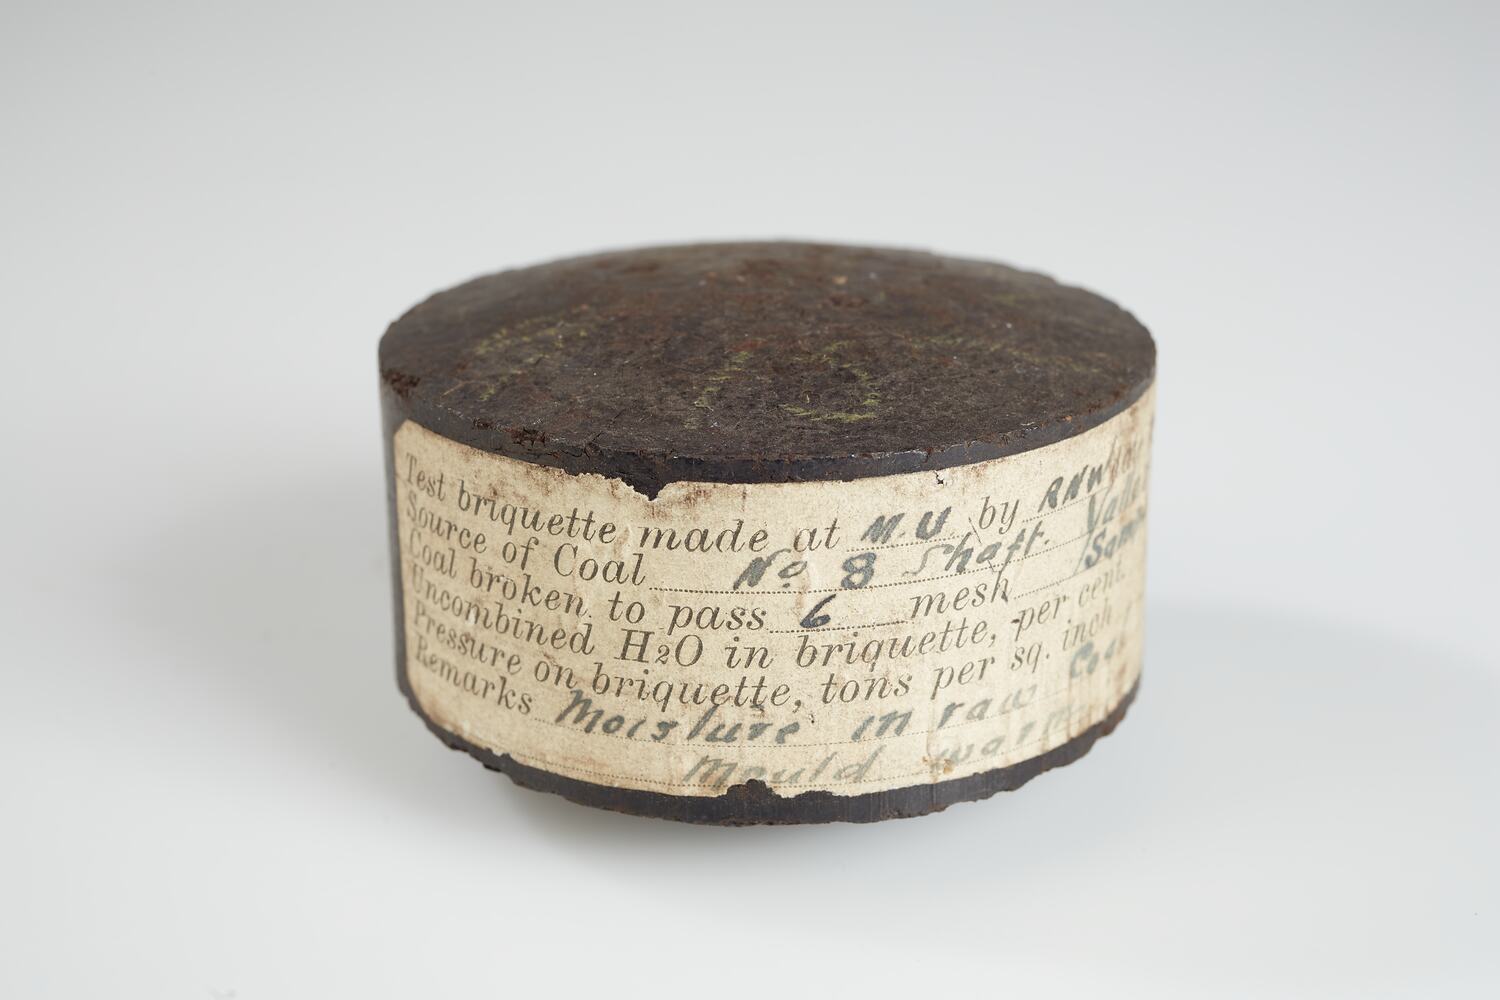 Test briquette made at M.U. by
Source of Coal No 8 Shaft.
Coal broken to pass 6 mesh
Uncombined H2O in briquette, per cent.
Pressure on briquette, tons per sq. inch
Remarks Moisture in raw Coal
Mould warm